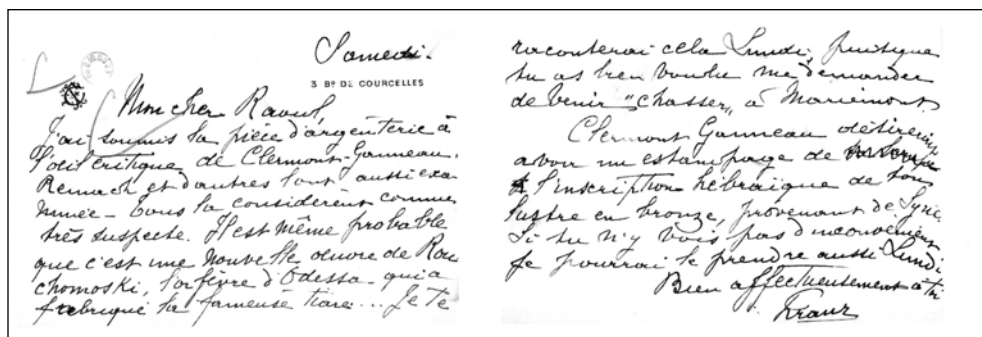 Samedi.
3 Bᴰ DE COURCELLES
Mon cher Raoul,
J'ai soumis la pièce d'argenterie à
l'œil critique de Clermont-Ganneau.
Reinach et d'autres l'ont aussi exa
minée – Tous la considèrent comme
très suspecte. Il est même probable
que c'est une nouvelle œuvre de Rou
chomoski, l'orfèvre d'Odessa qui a
fabriqué la fameuse tiare... Je te
raconterai cela Lundi, puisque
tu as bien voulu me demander
de venir "chasser" à Mariemont.
Clermont Ganneau désirerait
avoir un estampage de
l'inscription hébraïque de ton
lustre en bronze, provenant de Syrie.
Si tu n'y vois pas d'inconvénient
je pourrai le prendre aussi Lundi.
Bien affectueusement à toi
Franz